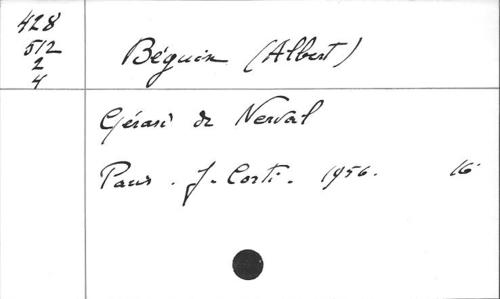 428
512
2
4
Béguin (Albert)
Gérard de Nerval
Paris. J. Corti. 1956. 16°